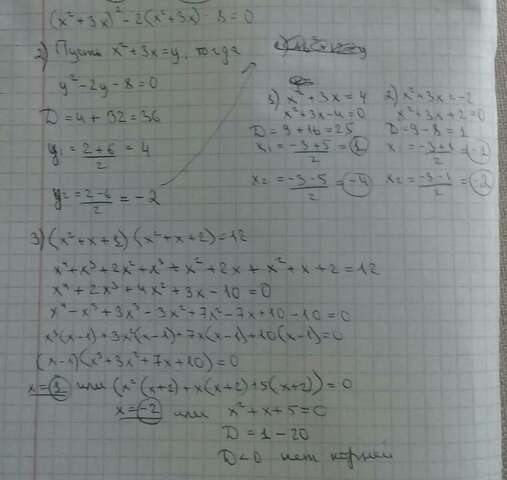 (x²+3x)²-2(x²+3x) 8=0
2) Пусть x²+3x=y, тогда
y²-2y-8=0
D=4+32=36
y₁=(2+6)/2=4
y₂=(2-6)/2=-2
1) x²+3x=4
x²+3x-4=0
D=9+16=25
x₁=(-3+5)/2=1
x₂=(-3-5)/2=-4
2) x²+3x=-2
x²+3x+2=0
D=9-8=1
x₁=(-3+1)/2=-1
x₂=(-3-1)/2=-2
3) (x²+x+1)(x²+x+2)=12
x⁴+x³+2x²+x³+x²+2x+x²+x+2=12
x⁴+2x³+4x²+3x-10=0
x⁴-x³+3x³-3x²+7x²-7x+10-10=0
x³(x-1)+3x²(x-1)+7x(x-1)+10(x-1)=0
(x-1)(x³+3x²+7x+10)=0
x=1 или (x²(x+2)+x(x+2)+5(x+2))=0
x=-2 или x²+x+5=0
D=1-20
D<0 нет корней